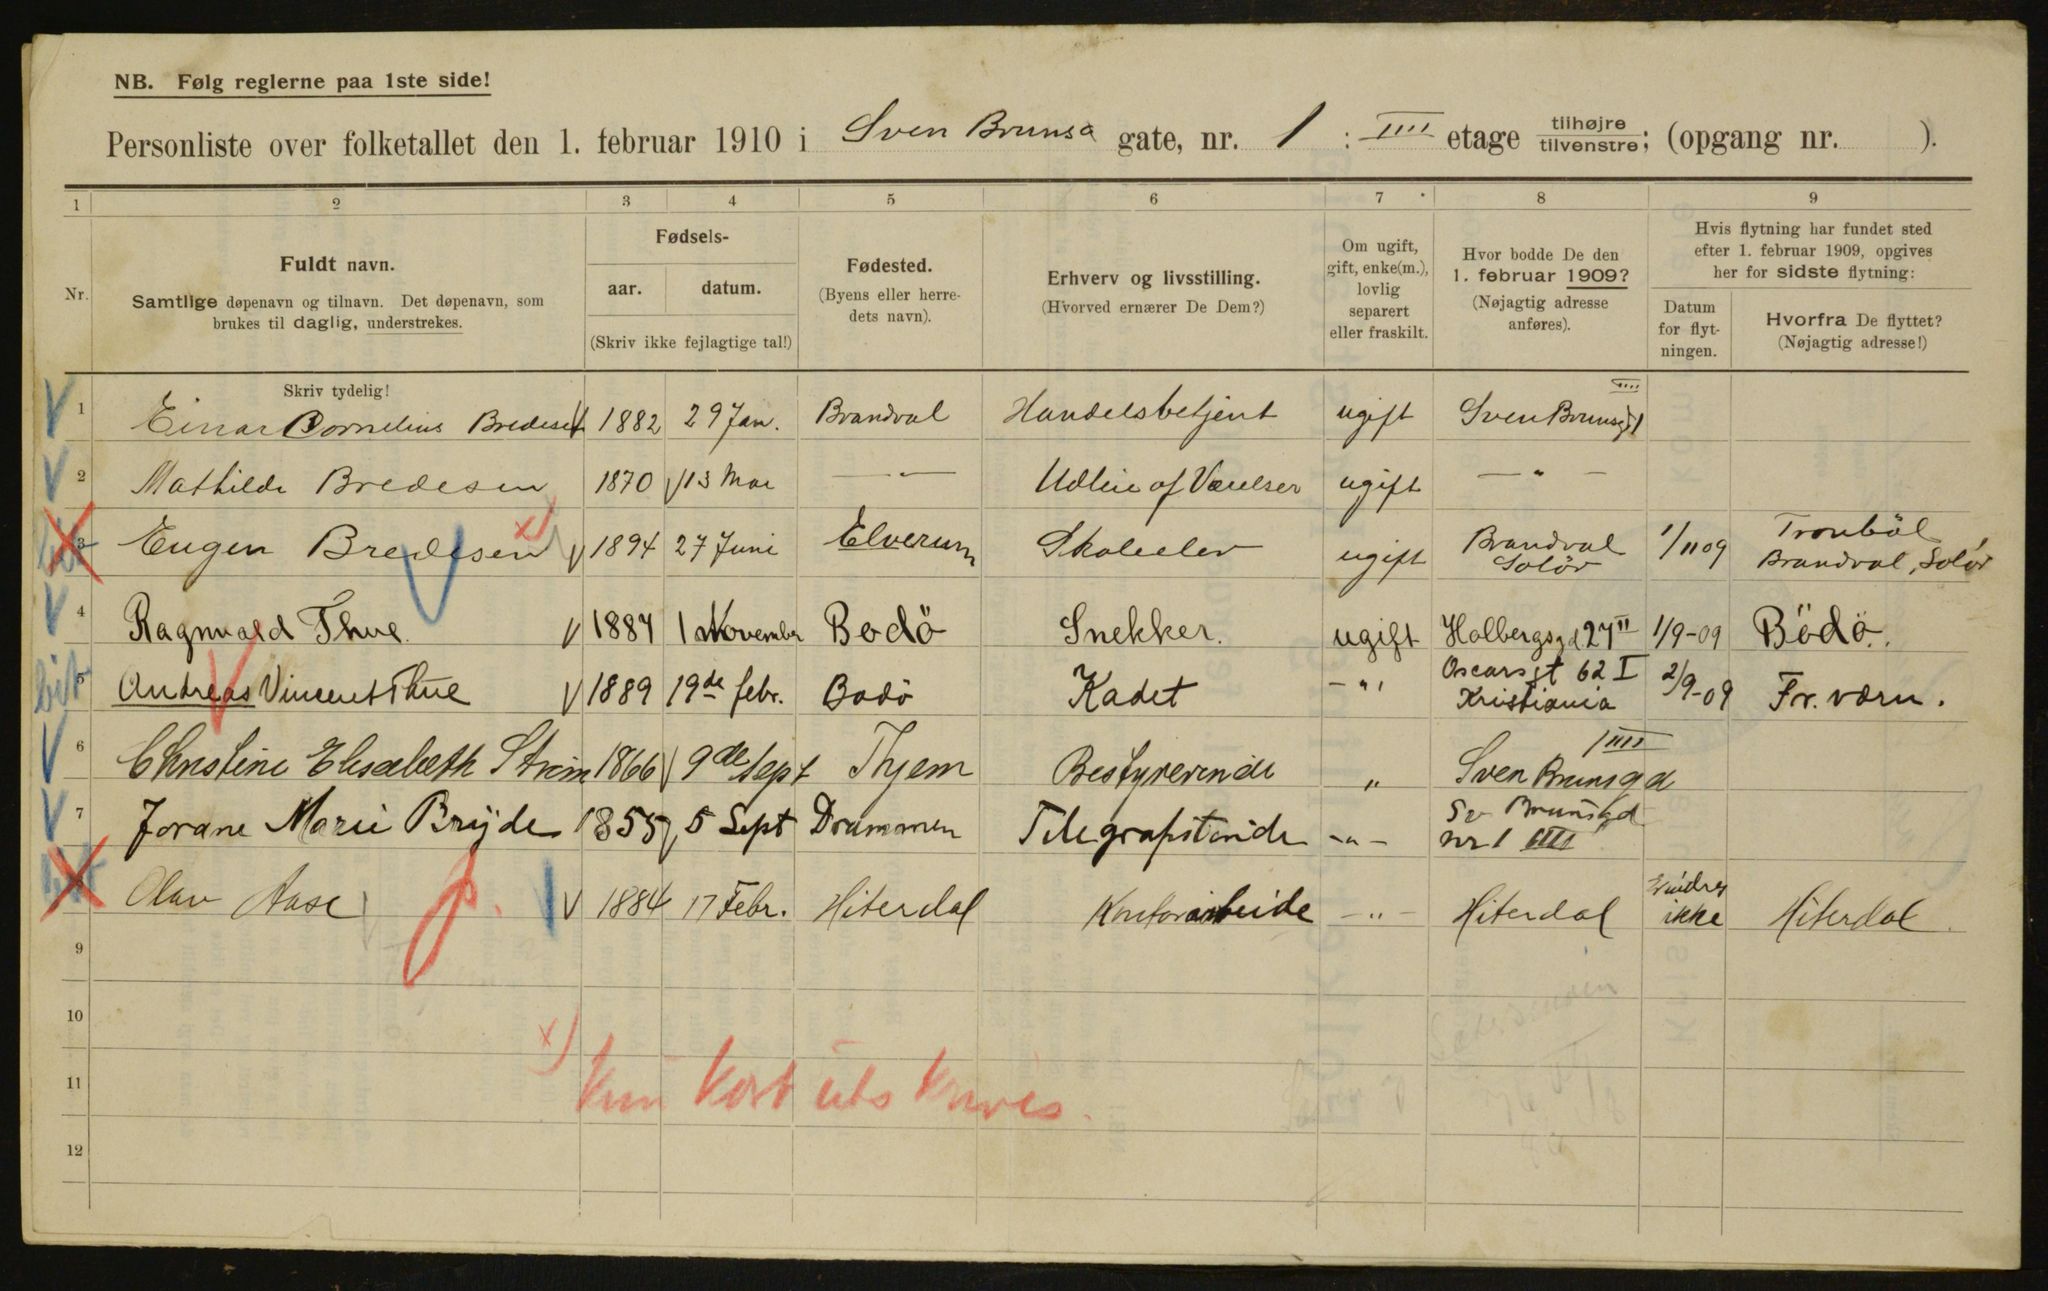 NB. Følg reglerne paa 1ste side!
Personliste over folketallet den 1. februar 1910 i Sven Bruns gate, nr. 1 : IIII etage tilhøjre tilvenstre; (opgang nr. ).
1 2 3 4 5 6 7 8 9
Nr.
Fuldt navn.
Samtlige døpenavn og tilnavn. Det døpenavn, som
brukes til daglig, understrekes.
Skriv tydelig!
Fødsels-
aar. datum.
(Skriv ikke fejlagtige tal!)
Fødested.
(Byens eller herre-
dets navn).
Erhverv og livsstilling.
(Hvorved ernærer De Dem?)
Om ugift,
gift, enke(m.),
lovlig
separert
eller fraskilt.
Hvor bodde De den
1. februar 1909?
(Nøjagtig adresse
anføres).
Hvis flytning har fundet sted
efter 1. februar 1909, opgives
her for sidste flytning:
Datum
for flyt-
ningen.
Hvorfra De flyttet?
(Nøjagtig adresse!)
1 Einar Cornelius Bredesen 1882 29 Jan. Brandval Handelsbetjent ugift Sven Brunsgd 1 IIII
2 Mathilde Bredesen 1870 13 Mai — " — Udleie af Værelser ugift — " —
3 Eugen Bredesen x) 1894 27 Juni Elverum Skoleelev ugift Brandval Solör 1/11 09 Tronböl Brandval, Solör
4 Ragnvald Thue. 1887 1 November Bodö Snekker. ugift Holbergsgd 27 II 1/9-09 Bödö.
5 Andreas Vincent Thue 1889 19de febr. Bodö Kadet — " Oscarsgt 62 I Kristiania 2/9-09 Fr. værn.
6 Christine Elisabeth Strøm 1866 9de Sept Thjem Bestyrerinde " Sven Brunsgd 1 IIII
7 Jorane Marie Bryde 1855 5 Sept Drammen Telegrafistinde — " — Sv Brunsgd nr 1 IIII
8 Olav Aase 1884 17 Febr. Hiterdal Kontorarbeide — " — Hiterdal Erindres ikke Hiterdal
9
10
11
12
x) Kun kort utskrives.